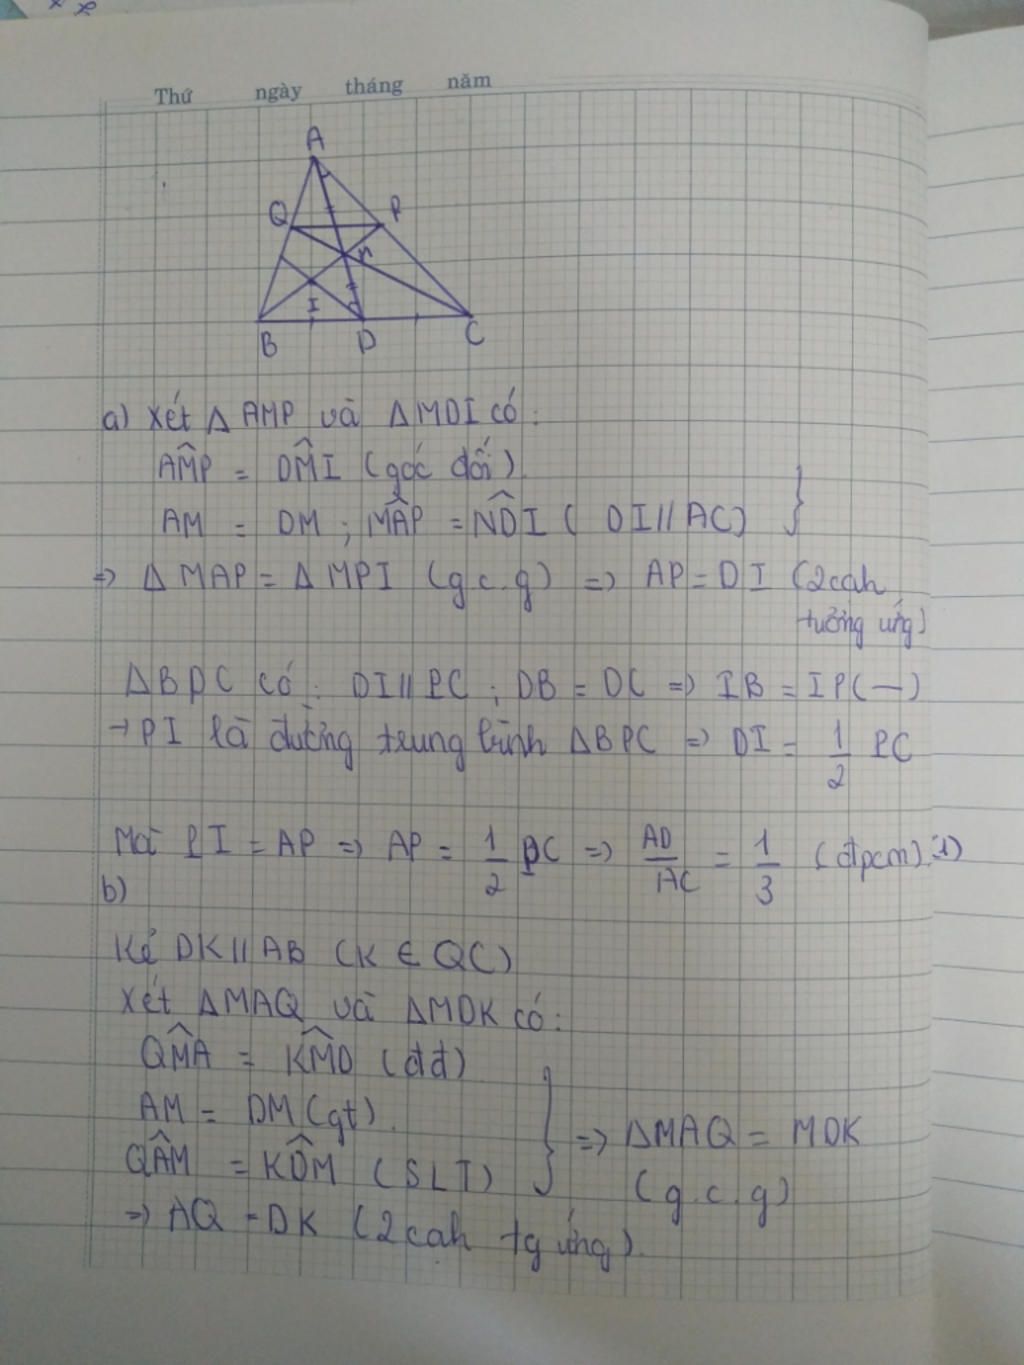 Thứ ngày tháng năm
A
Q P
I
B D C
a) Xét Δ AMP và ΔMDI có:
AMP = DMI (góc đối)
AM = DM ; MAP = NDI ( DI // AC) }
=> Δ MAP = Δ MPI (g.c.g) => AP = DI (2 cạh
tưởng ứng)
ΔBPC có: DI // PC ; DB = DC => IB = IP (—)
→ PI là đường trung bình ΔBPC => DI = 1/2 PC
Mà PI = AP => AP = 1/2 PC => AD/AC = 1/3 (đpcm) (1)
b)
Kẻ DK // AB (K ∈ QC)
Xét ΔMAQ và ΔMDK có:
QMA = KMD (đđ)
AM = DM (gt).
QAM = KDM (SLT) } => ΔMAQ = MDK
(g.c.g)
=> AQ = DK (2 cạh tg ứng).